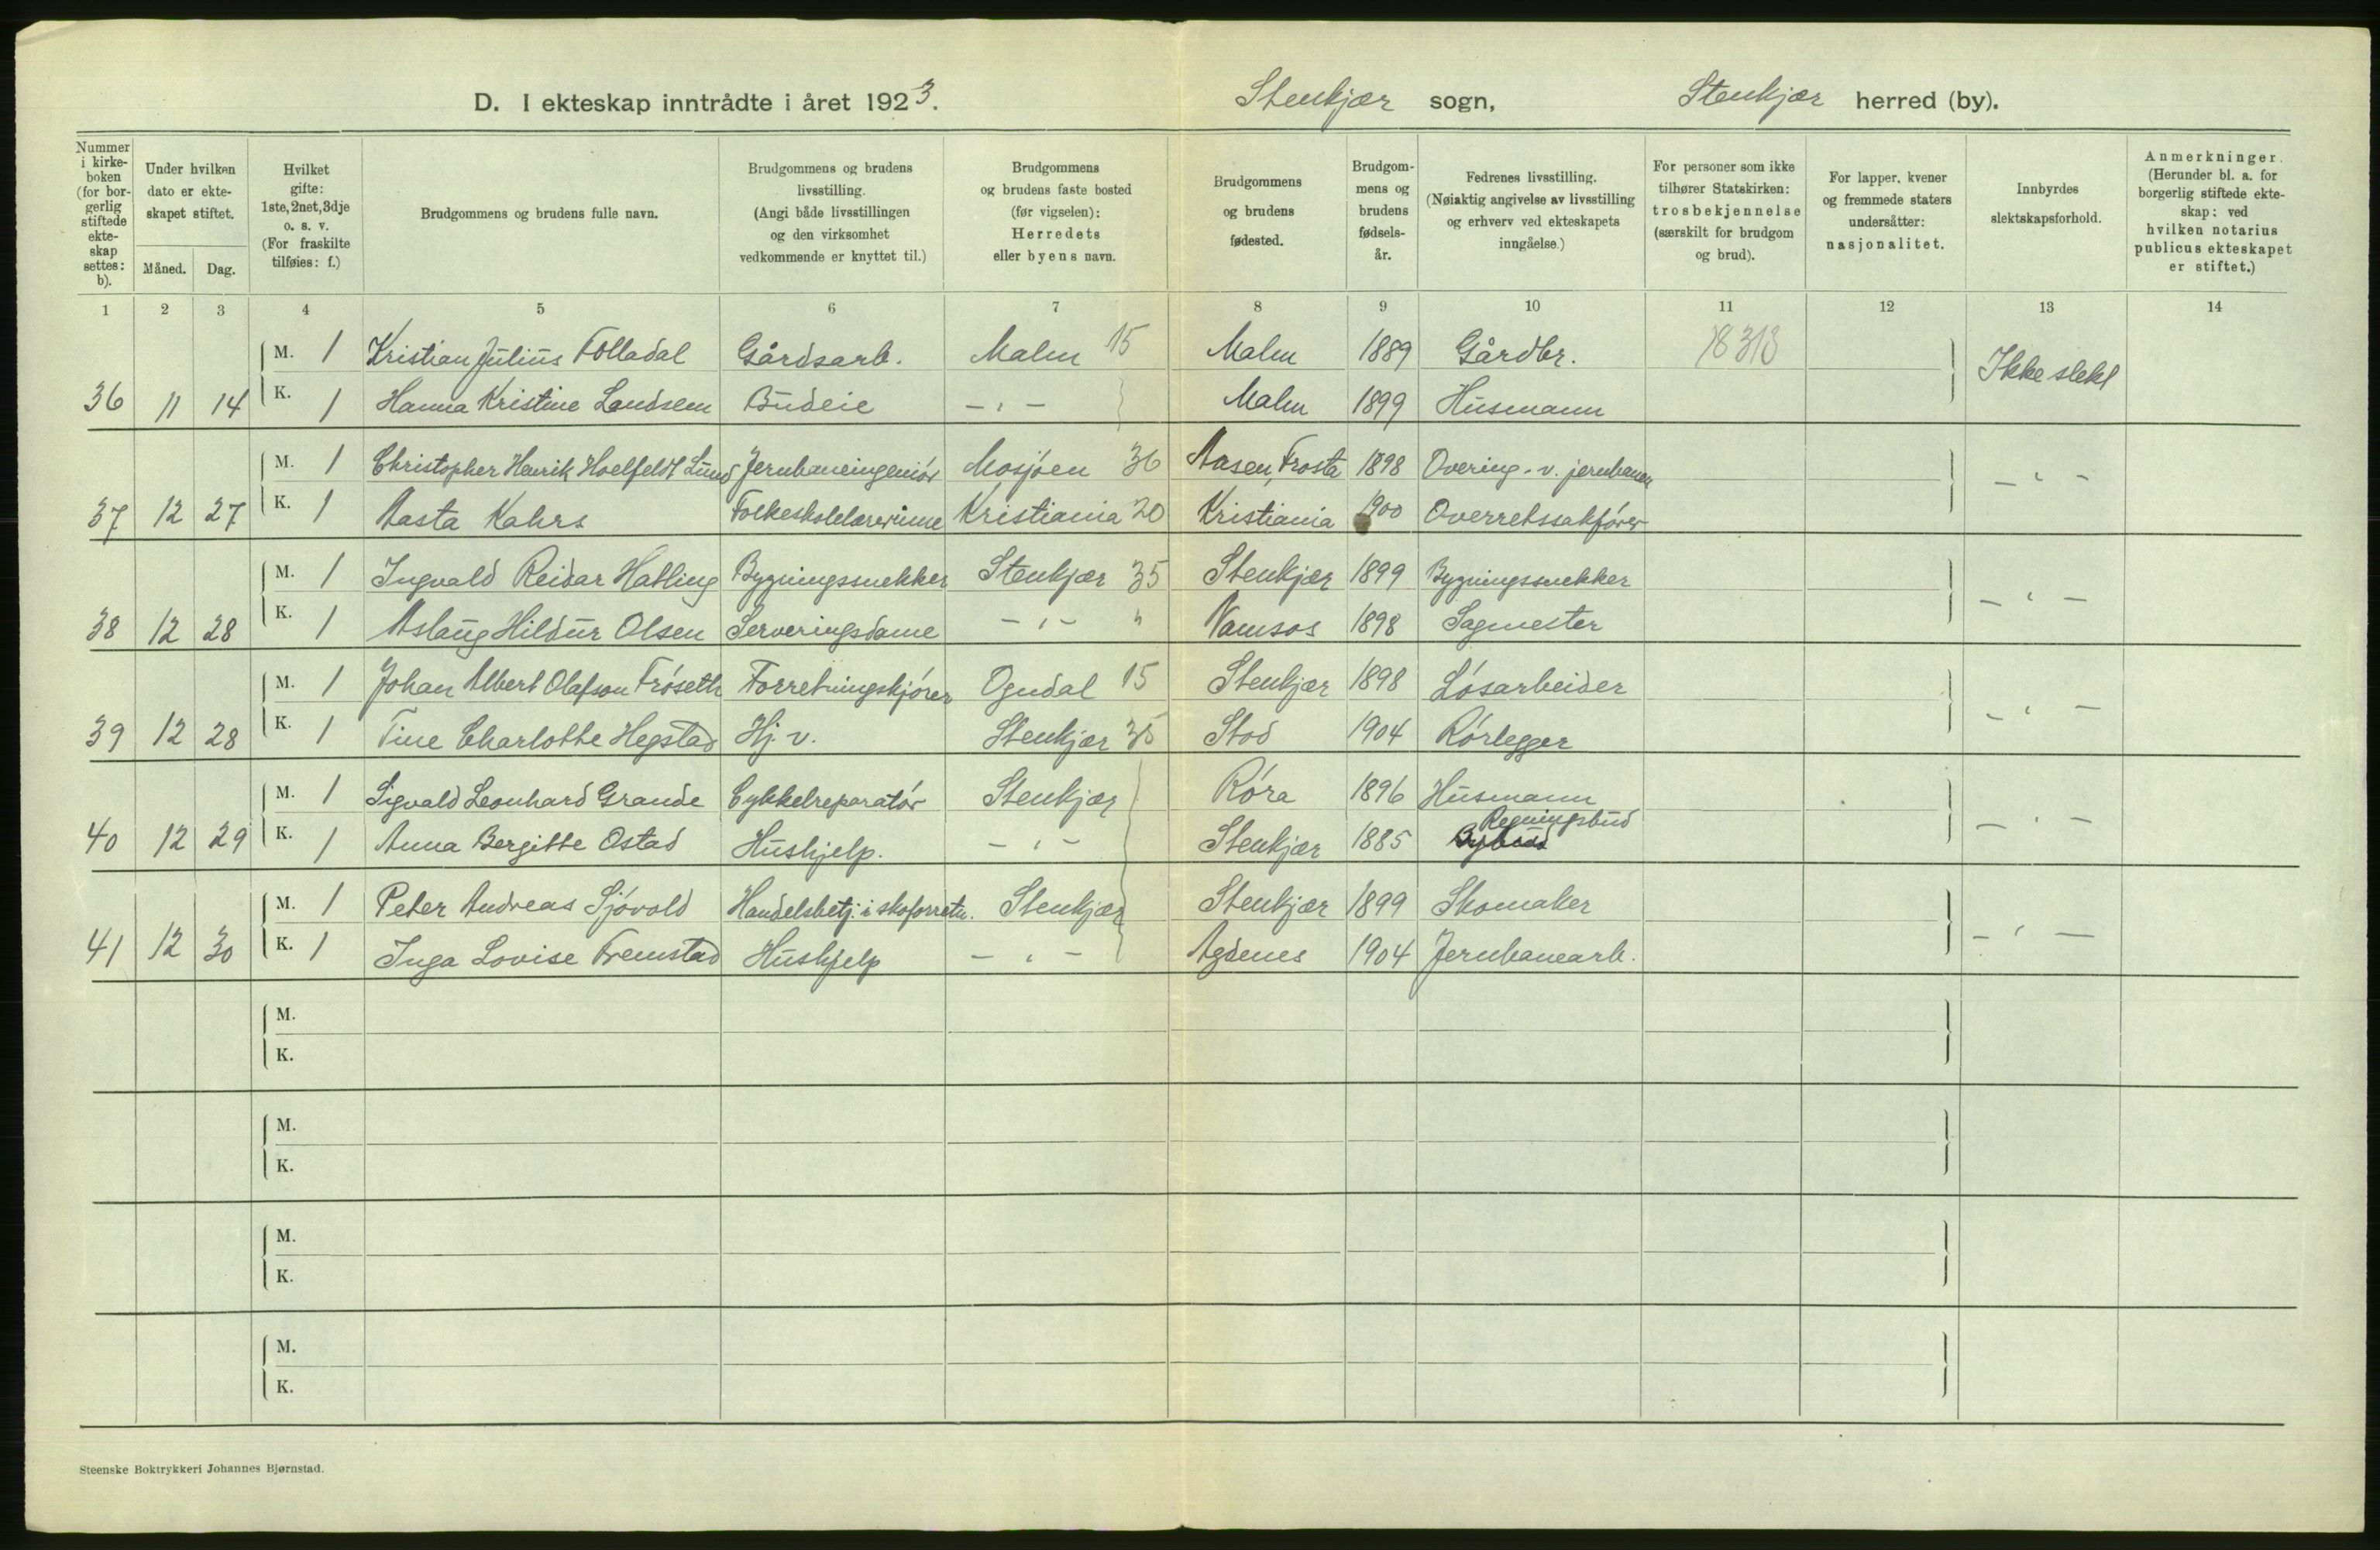 D. I ekteskap inntrådte i året 1923. Stenkjær sogn, Stenkjær herred (by).
Nummer i kirkeboken (for borgerlig stiftede ekteskap settes: b).
Under hvilken dato er ekteskapet stiftet.
Måned. Dag.
Hvilket gifte: 1ste, 2net, 3dje o. s. v. (For fraskilte tilføies: f.)
Brudgommens og brudens fulle navn.
Brudgommens og brudens livsstilling. (Angi både livsstillingen og den virksomhet vedkommende er knyttet til.)
Brudgommens og brudens faste bosted (før vigselen): Herredets eller byens navn.
Brudgommens og brudens fødested.
Brudgommens og brudens fødselsår.
Fedrenes livsstilling. (Nøiaktig angivelse av livsstilling og erhverv ved ekteskapets inngåelse.)
For personer som ikke tilhører Statskirken: trosbekjennelse (særskilt for brudgom og brud).
For lapper, kvener og fremmede staters undersåtter: nasjonalitet.
Innbyrdes slektskapsforhold.
Anmerkninger. (Herunder bl. a. for borgerlig stiftede ekteskap: ved hvilken notarius publicus ekteskapet er stiftet.)
1 2 3 4 5 6 7 8 9 10 11 12 13 14
M. 1 Kristian Julius Folladal Gårdsarb. Malm 15 Malm 1889 Gårdbr. 18313 Ikke slekt
36 11 14 K. 1 Hanna Kristine Landsem Budeie - " - Malm 1899 Husmann
M. 1 Christopher Henrik Hoelfeldt Lund Jernbaneingeniór Mosjóen 36 Aasen, Frosta 1898 Overing. v. jernbanen - " -
37 12 27 K. 1 Aasta Kahrs Folkeskolelærerinne Kristiania 20 Kristiania 1900 Overretssakfórer
M. 1 Ingvald Reidar Hatling Bygningssnekker Stenkjær 35 Stenkjær 1899 Bygningssnekker - " -
38 12 28 K. 1 Aslaug Hildur Olsen Serveringsdame - " - " Namsos 1898 Sagmester
M. 1 Johan Albert Olafson Fróseth Forretningskjórer Ogndal 15 Stenkjær 1898 Lósarbeider - " -
39 12 28 K. 1 Tine Charlotte Hegstad Hj. v. Stenkjær 35 Stod 1904 Rórlegger
M. 1 Sigvald Leonhard Grande Cykkelreparatór Stenkjær Róra 1896 Husmann - " -
Regningsbud
40 12 29 K. 1 Anna Bergitte Ostad Hushjelp. - " - Stenkjær 1885 Bybud
M. 1 Peter Andreas Sjóvold Handelsbetj. i skoforretn. Stenkjær Stenkjær 1899 Skomaker - " -
41 12 30 K. 1 Inga Lovise Fremstad Hushjelp - " - Agdenes 1904 Jernbanearb.
M.
K.
M.
K.
M.
K.
M.
K.
Steenske Boktrykkeri Johannes Bjørnstad.